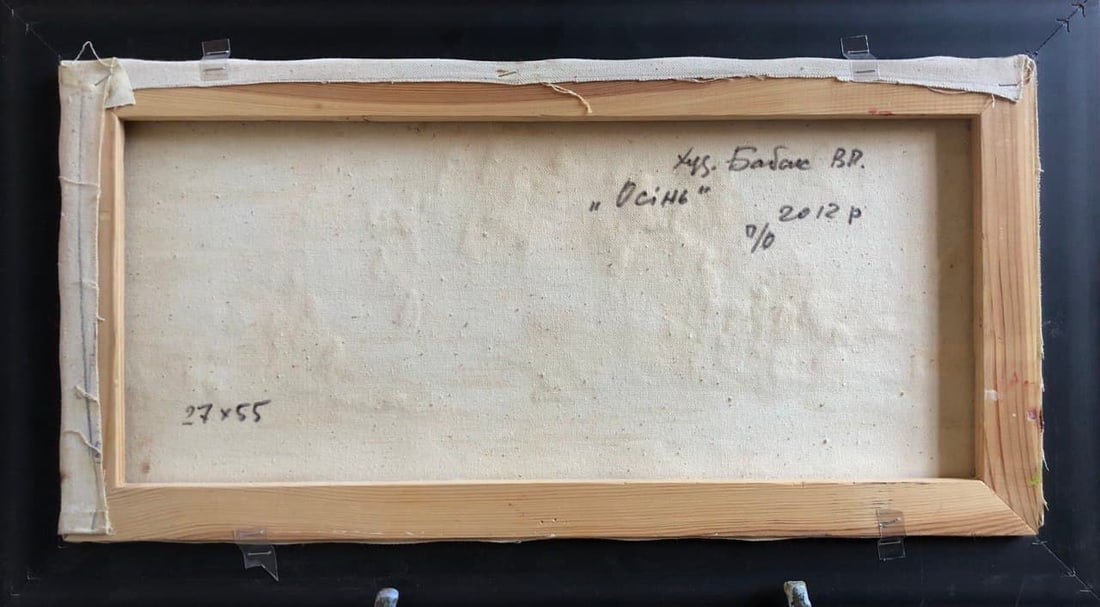 Худ. Бабак В.П.
„Осінь"
2012 р
п/о
27х55